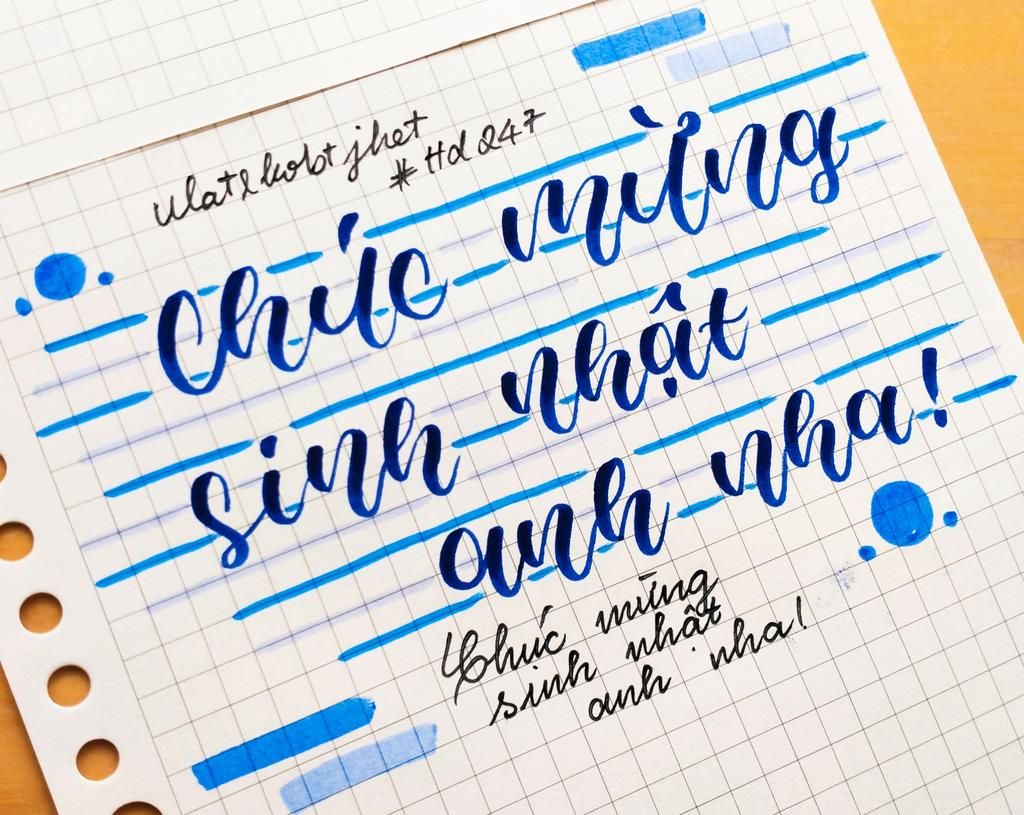 # Hd 247
Chúc mừng
sinh nhật
anh nha!
Chúc mừng
sinh nhật
anh nha!